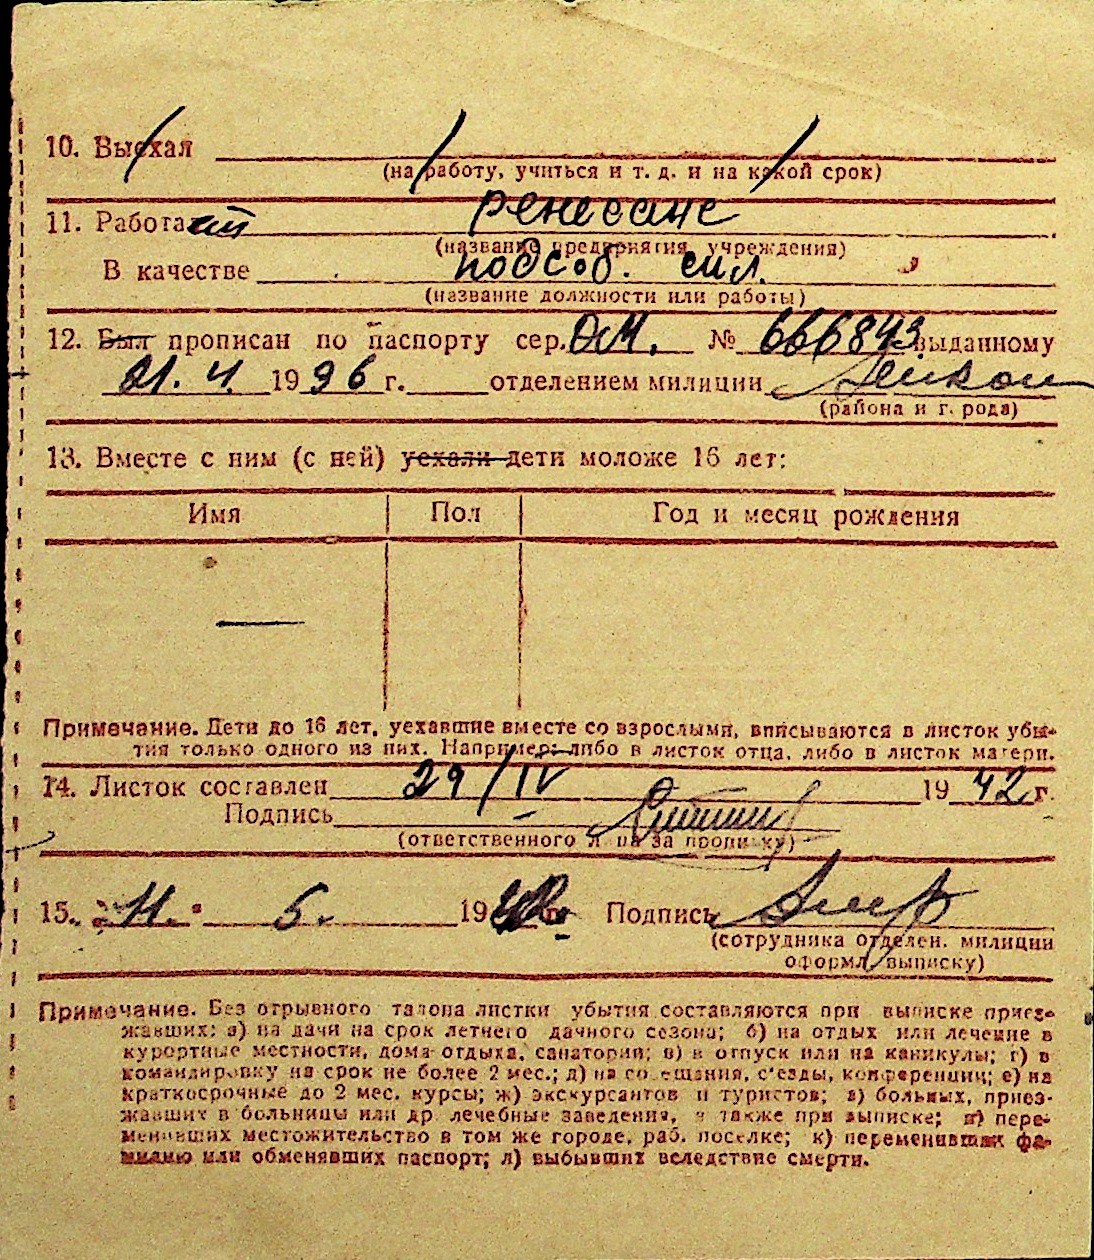 10. Выехал
(на работу, учиться и т. д. и на какой срок)
11. Работает
(название предприятия, учреждения)
В качестве подсоб. сил.
(название должности или работы)
12. Был прописан по паспорту сер. ОМ. № 666843 выданному
21. 4 1996 г. отделением милиции
(района и г. рода)
13. Вместе с ним (с ней) уехали дети моложе 16 лет:
Имя Пол Год и месяц рождения
—
Примечание. Дети до 16 лет, уехавшие вместе со взрослыми, вписываются в листок убы-
тия только одного из них. Например: либо в листок отца, либо в листок матери.
14. Листок составлен 29/IV 1942 г.
Подпись
(ответственного л на за прописку)
15. 11. 5. 19 г. Подпись
(сотрудника отделен. милиции
оформл. выписку)
Примечание. Без отрывного талона листки убытия составляются при выписке приез-
жавших: а) на дачи на срок летнего дачного сезона; б) на отдых или лечение в
курортные местности, дома отдыха, санатории; в) в отпуск или на каникулы; г) в
командировку на срок не более 2 мес.; д) на совещания, с'езды, конференции; е) на
краткосрочные до 2 мес. курсы; ж) экскурсантов и туристов; з) больных, приез-
жавших в больницы или др. лечебные заведения, а также при выписке; и) пере-
менивших местожительство в том же городе, раб. поселке; к) переменивших фа-
милию или обменявших паспорт; л) выбывших вследствие смерти.